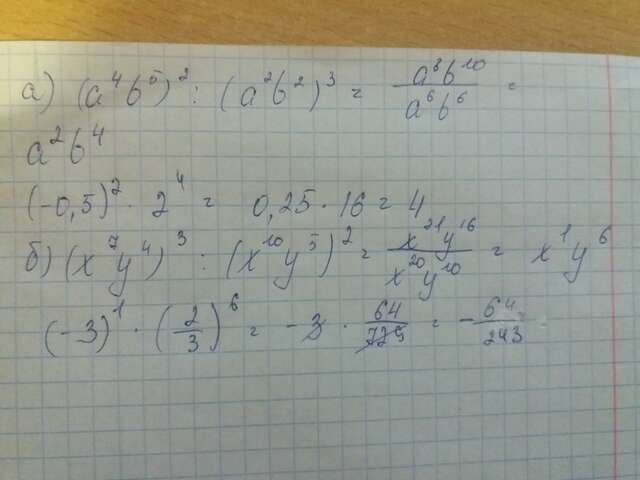 а) (a⁴b⁵)² : (a²b²)³ = a⁸b¹⁰/a⁶b⁶ =
a²b⁴
(-0,5)² · 2⁴ = 0,25 · 16 = 4
б) (x⁷y⁴)³ : (x¹⁰y⁵)² = x²¹y¹⁶/x²⁰y¹⁰ = x¹y⁶
(-3)¹ · (2/3)⁶ = -3 · 64/729 = -64/243